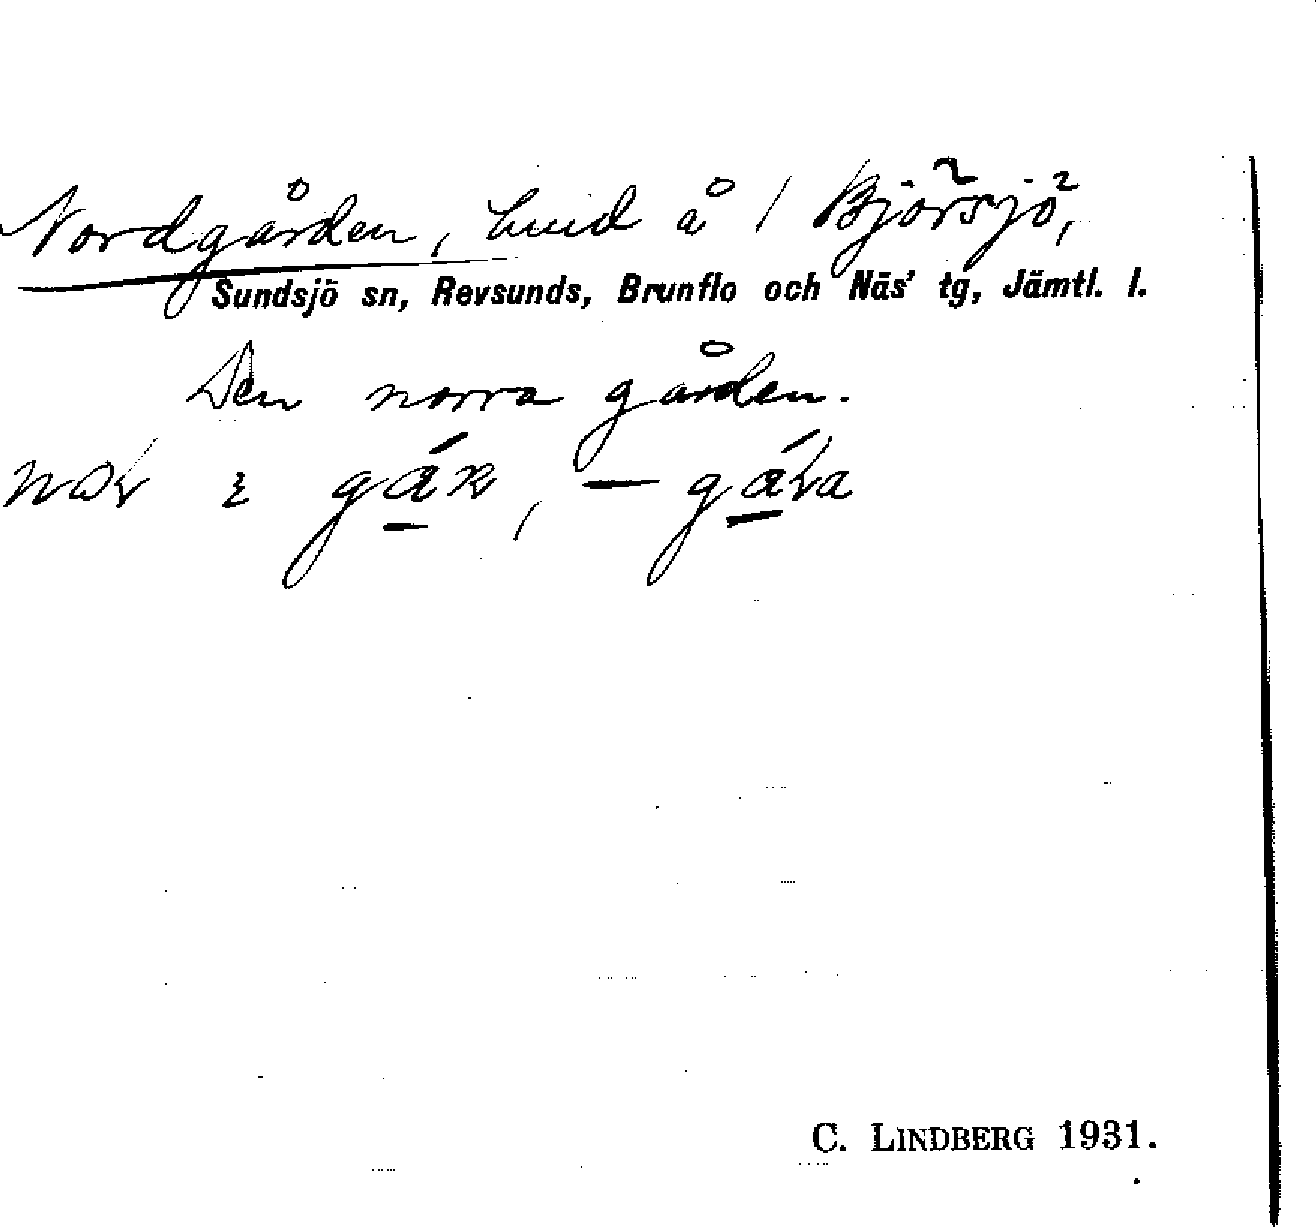 Nordgården, hmd å 1 Björsjö,
Sundsjö sn, Revsunds, Brunflo och Näs' tg, Jämtl. l.
Den norra gården.
C. LINDBERG 1931.